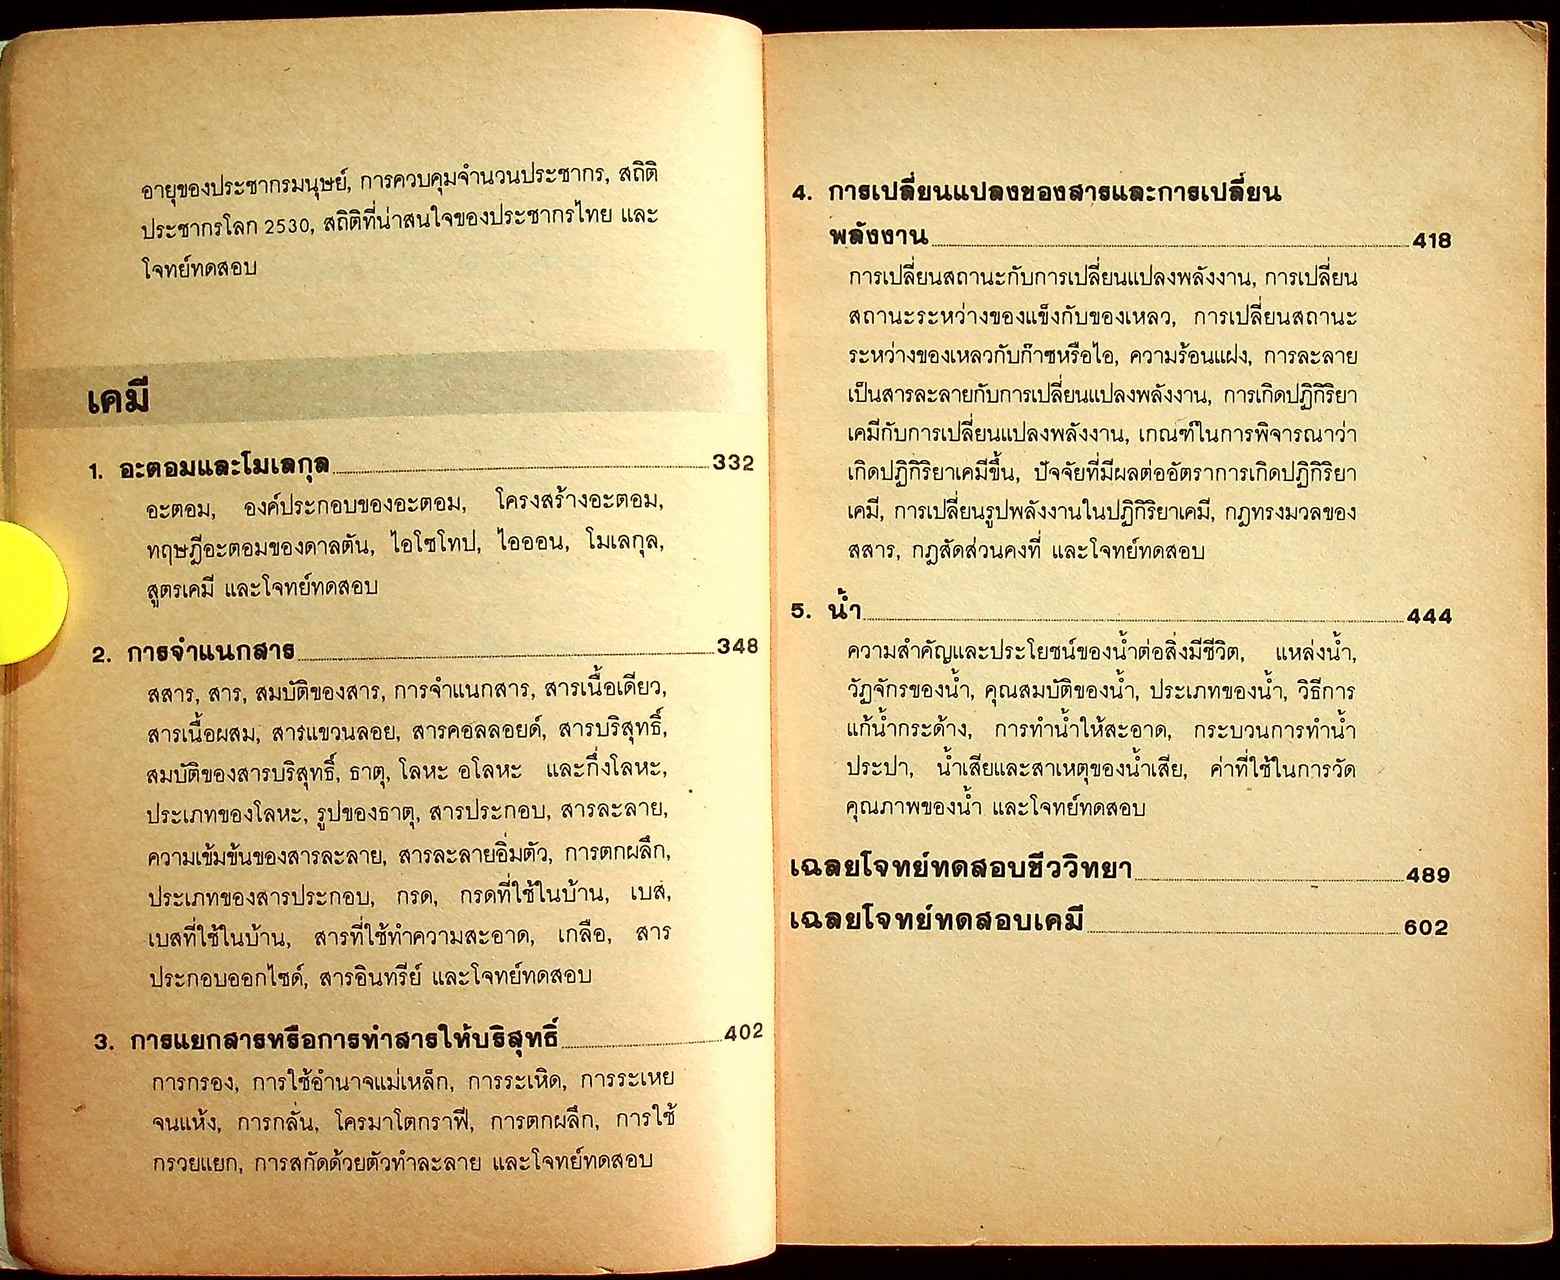 อายุของประชากรมนุษย์, การควบคุมจำนวนประชากร, สถิติ
ประชากรโลก 2530, สถิติที่น่าสนใจของประชากรไทย และ
โจทย์ทดสอบ
เคมี
1. อะตอมและโมเลกุล 332
อะตอม, องค์ประกอบของอะตอม, โครงสร้างอะตอม,
ทฤษฎีอะตอมของดาลตัน, ไอโซโทป, ไอออน, โมเลกุล,
สูตรเคมี และโจทย์ทดสอบ
2. การจำแนกสาร 348
สสาร, สาร, สมบัติของสาร, การจำแนกสาร, สารเนื้อเดียว,
สารเนื้อผสม, สารแขวนลอย, สารคอลลอยด์, สารบริสุทธิ์,
สมบัติของสารบริสุทธิ์, ธาตุ, โลหะ อโลหะ และกึ่งโลหะ,
ประเภทของโลหะ, รูปของธาตุ, สารประกอบ, สารละลาย,
ความเข้มข้นของสารละลาย, สารละลายอิ่มตัว, การตกผลึก,
ประเภทของสารประกอบ, กรด, กรดที่ใช้ในบ้าน, เบส,
เบสที่ใช้ในบ้าน, สารที่ใช้ทำความสะอาด, เกลือ, สาร
ประกอบออกไซด์, สารอินทรีย์ และโจทย์ทดสอบ
3. การแยกสารหรือการทำสารให้บริสุทธิ์ 402
การกรอง, การใช้อำนาจแม่เหล็ก, การระเหิด, การระเหย
จนแห้ง, การกลั่น, โครมาโตกราฟี, การตกผลึก, การใช้
กรวยแยก, การสกัดด้วยตัวทำละลาย และโจทย์ทดสอบ
4. การเปลี่ยนแปลงของสารและการเปลี่ยน
พลังงาน 418
การเปลี่ยนสถานะกับการเปลี่ยนแปลงพลังงาน, การเปลี่ยน
สถานะระหว่างของแข็งกับของเหลว, การเปลี่ยนสถานะ
ระหว่างของเหลวกับก๊าซหรือไอ, ความร้อนแฝง, การละลาย
เป็นสารละลายกับการเปลี่ยนแปลงพลังงาน, การเกิดปฏิกิริยา
เคมีกับการเปลี่ยนแปลงพลังงาน, เกณฑ์ในการพิจารณาว่า
เกิดปฏิกิริยาเคมีขึ้น, ปัจจัยที่มีผลต่ออัตราการเกิดปฏิกิริยา
เคมี, การเปลี่ยนรูปพลังงานในปฏิกิริยาเคมี, กฎทรงมวลของ
สสาร, กฎสัดส่วนคงที่ และโจทย์ทดสอบ
5. น้ำ 444
ความสำคัญและประโยชน์ของน้ำต่อสิ่งมีชีวิต, แหล่งน้ำ,
วัฏจักรของน้ำ, คุณสมบัติของน้ำ, ประเภทของน้ำ, วิธีการ
แก้น้ำกระด้าง, การทำน้ำให้สะอาด, กระบวนการทำน้ำ
ประปา, น้ำเสียและสาเหตุของน้ำเสีย, ค่าที่ใช้ในการวัด
คุณภาพของน้ำ และโจทย์ทดสอบ
เฉลยโจทย์ทดสอบชีววิทยา 489
เฉลยโจทย์ทดสอบเคมี 602